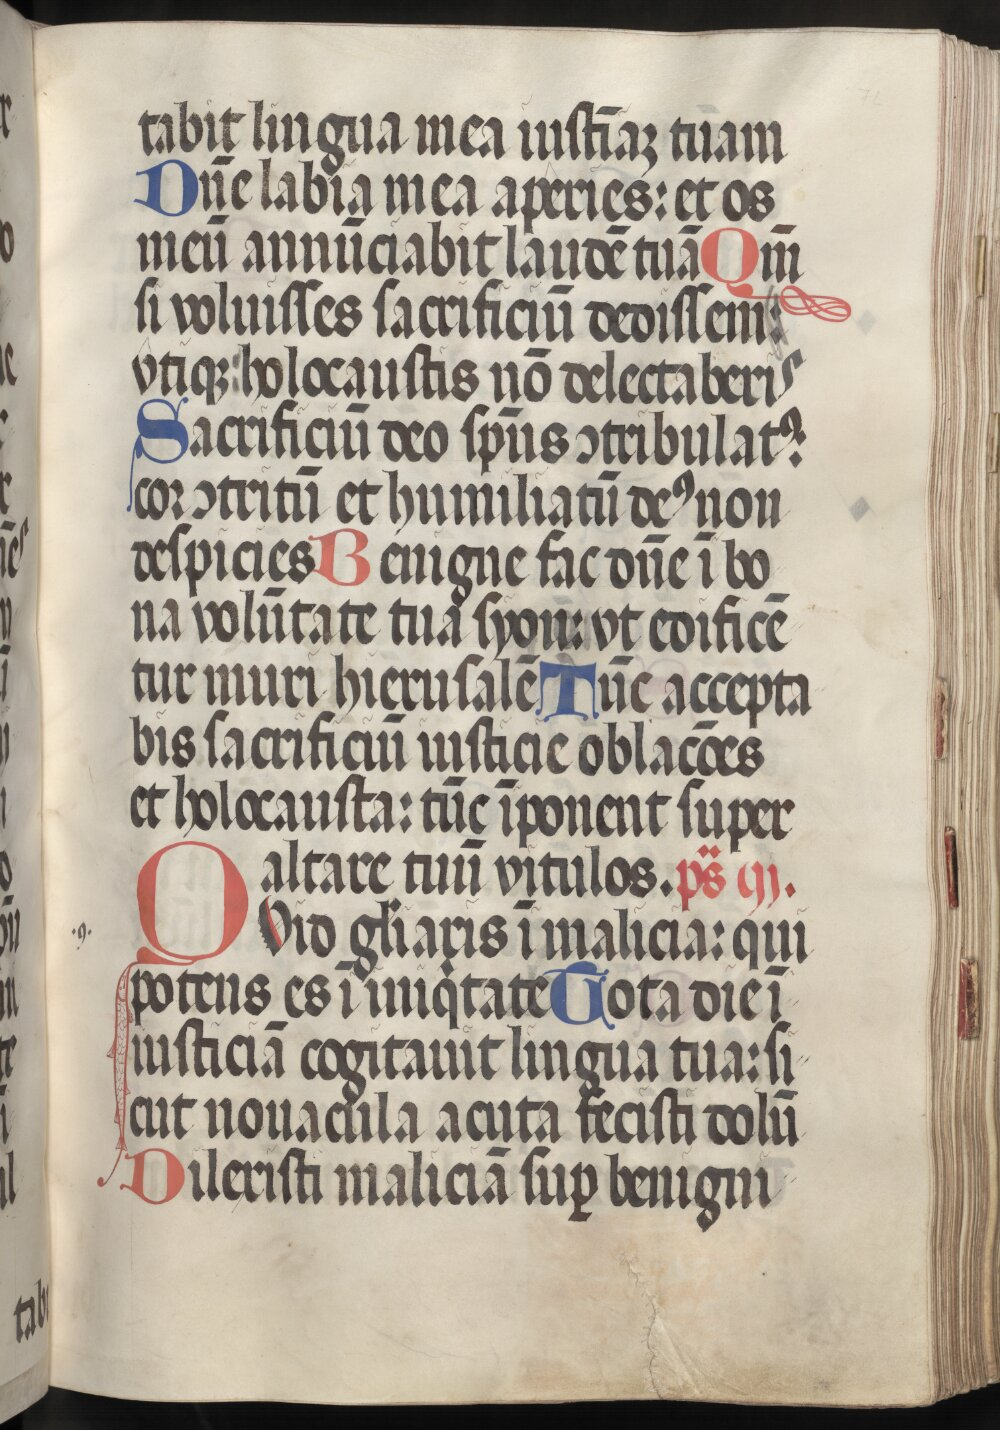 tabit lingua mea iusti̅aꝫ tuam
Dn̅e labia mea aperies: et os
meu̅ annu̅ciabit laude̅ tua̅ Qm̅
si voluisses sacrificiu̅ dedissem:
vtiqꝫ holocaustis no̅ delectaberis
Sacrificiu̅ deo sp̅us ↄtribulatꝰ:
cor ↄtritu̅ et humiliatu̅ deꝰ non
despicies Benigne fac dn̅e i̅ bo
na volu̅tate tua syon: vt edifice̅
tur muri hierusale̅ Tu̅c accepta
bis sacrificiu̅ iusticie oblaco̅es
et holocausta: tu̅c i̅ponent super
altare tuu̅ vitulos. ps̅
QVid gl̅iaris i̅ malicia: qui
potens es i̅ iniqͥtate Tota die i̅
iusticia̅ cogitauit lingua tua: si
cut nouacula acuta fecisti dolu̅
Dilexisti malicia̅ suꝑ benigni
·9·
tab